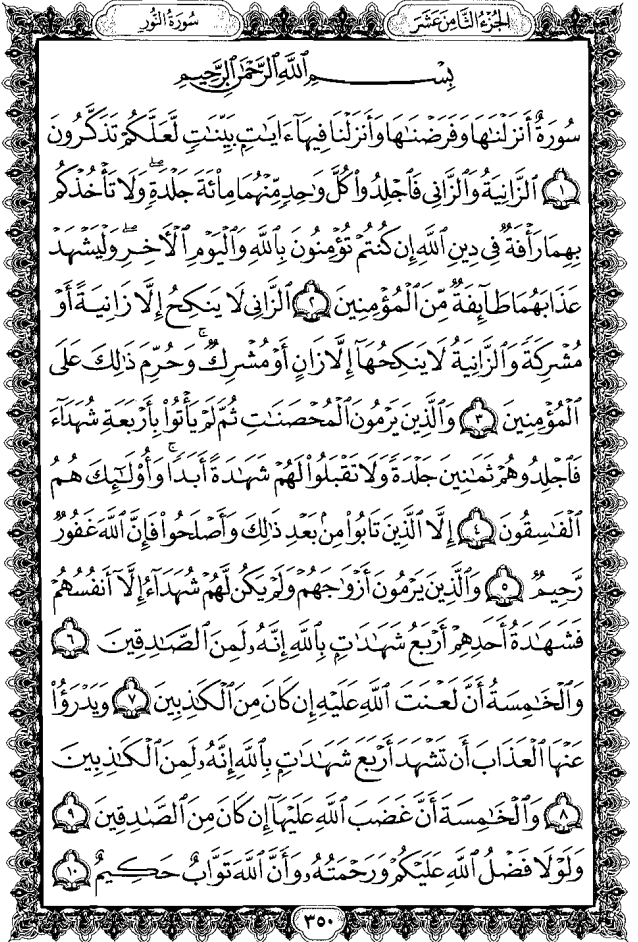 سُورَةُ النُّورِ
الجُزْءُ الثَّامِنَ عَشَرَ
بِسْمِ ٱللَّهِ ٱلرَّحْمَٰنِ ٱلرَّحِيمِ
سُورَةٌ أَنزَلْنَٰهَا وَفَرَضْنَٰهَا وَأَنزَلْنَا فِيهَآ ءَايَٰتٍۭ بَيِّنَٰتٍ لَّعَلَّكُمْ تَذَكَّرُونَ
١ ٱلزَّانِيَةُ وَٱلزَّانِى فَٱجْلِدُوا۟ كُلَّ وَٰحِدٍ مِّنْهُمَا مِا۟ئَةَ جَلْدَةٍ ۖ وَلَا تَأْخُذْكُم
بِهِمَا رَأْفَةٌ فِى دِينِ ٱللَّهِ إِن كُنتُمْ تُؤْمِنُونَ بِٱللَّهِ وَٱلْيَوْمِ ٱلْءَاخِرِ ۖ وَلْيَشْهَدْ
عَذَابَهُمَا طَآئِفَةٌ مِّنَ ٱلْمُؤْمِنِينَ ٢ ٱلزَّانِى لَا يَنكِحُ إِلَّا زَانِيَةً أَوْ
مُشْرِكَةً وَٱلزَّانِيَةُ لَا يَنكِحُهَآ إِلَّا زَانٍ أَوْ مُشْرِكٌ ۚ وَحُرِّمَ ذَٰلِكَ عَلَى
ٱلْمُؤْمِنِينَ ٣ وَٱلَّذِينَ يَرْمُونَ ٱلْمُحْصَنَٰتِ ثُمَّ لَمْ يَأْتُوا۟ بِأَرْبَعَةِ شُهَدَآءَ
فَٱجْلِدُوهُمْ ثَمَٰنِينَ جَلْدَةً وَلَا تَقْبَلُوا۟ لَهُمْ شَهَٰدَةً أَبَدًا ۚ وَأُو۟لَٰٓئِكَ هُمُ
ٱلْفَٰسِقُونَ ٤ إِلَّا ٱلَّذِينَ تَابُوا۟ مِنۢ بَعْدِ ذَٰلِكَ وَأَصْلَحُوا۟ فَإِنَّ ٱللَّهَ غَفُورٌ
رَّحِيمٌ ٥ وَٱلَّذِينَ يَرْمُونَ أَزْوَٰجَهُمْ وَلَمْ يَكُن لَّهُمْ شُهَدَآءُ إِلَّآ أَنفُسُهُمْ
فَشَهَٰدَةُ أَحَدِهِمْ أَرْبَعُ شَهَٰدَٰتٍۭ بِٱللَّهِ إِنَّهُۥ لَمِنَ ٱلصَّٰدِقِينَ ٦
وَٱلْخَٰمِسَةُ أَنَّ لَعْنَتَ ٱللَّهِ عَلَيْهِ إِن كَانَ مِنَ ٱلْكَٰذِبِينَ ٧ وَيَدْرَؤُا۟
عَنْهَا ٱلْعَذَابَ أَن تَشْهَدَ أَرْبَعَ شَهَٰدَٰتٍۭ بِٱللَّهِ إِنَّهُۥ لَمِنَ ٱلْكَٰذِبِينَ
٨ وَٱلْخَٰمِسَةَ أَنَّ غَضَبَ ٱللَّهِ عَلَيْهَآ إِن كَانَ مِنَ ٱلصَّٰدِقِينَ ٩
وَلَوْلَا فَضْلُ ٱللَّهِ عَلَيْكُمْ وَرَحْمَتُهُۥ وَأَنَّ ٱللَّهَ تَوَّابٌ حَكِيمٌ ١٠
٣٥٠